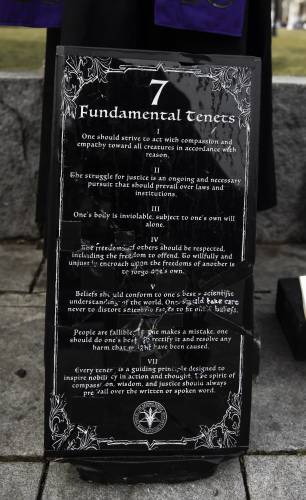 7
Fundamental Tenets
I
One should strive to act with compassion and
empathy toward all creatures in accordance with
reason.
II
The struggle for justice is an ongoing and necessary
pursuit that should prevail over laws and
institutions.
III
One's body is inviolable, subject to one's own will
alone.
IV
The freedoms of others should be respected,
including the freedom to offend. To willfully and
unjustly encroach upon the freedoms of another is
to forgo one's own.
V
Beliefs should conform to one's best scientific
understanding of the world. One should take care
never to distort scientific facts to fit our beliefs.
People are fallible. If one makes a mistake, one
should do one's best to rectify it and resolve any
harm that might have been caused.
VII
Every tenet is a guiding principle designed to
inspire nobility in action and thought. The spirit of
compassion, wisdom, and justice should always
prevail over the written or spoken word.